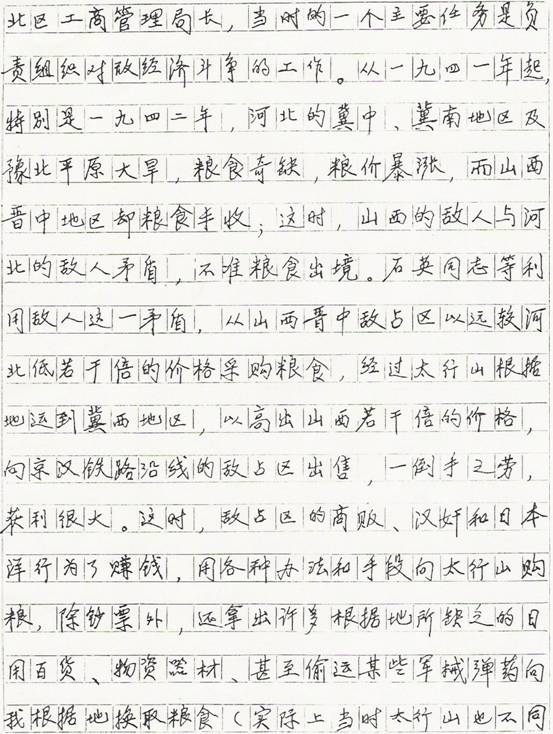 北区工商管理局长，当时的一个主要任务是负
责组织对敌经济斗争的工作。从一九四一年起，
特别是一九四二年，河北的冀中、冀南地区及
豫北平原大旱，粮食奇缺，粮价暴涨，而山西
晋中地区却粮食丰收；这时，山西的敌人与河
北的敌人矛盾，不准粮食出境。石英同志等利
用敌人这一矛盾，从山西晋中敌占区以远较河
北低若干倍的价格采购粮食，经过太行山根据
地运到冀西地区，以高出山西若干倍的价格，
向京汉铁路沿线的敌占区出售，一倒手之劳，
获利很大。这时，敌占区的商贩、汉奸和日本
洋行为了赚钱，用各种办法和手段向太行山购
粮，除钞票外，还拿出许多根据地所缺乏的日
用百货、物资器材、甚至偷运某些军械弹药向
我根据地换取粮食（实际上当时太行山也不同